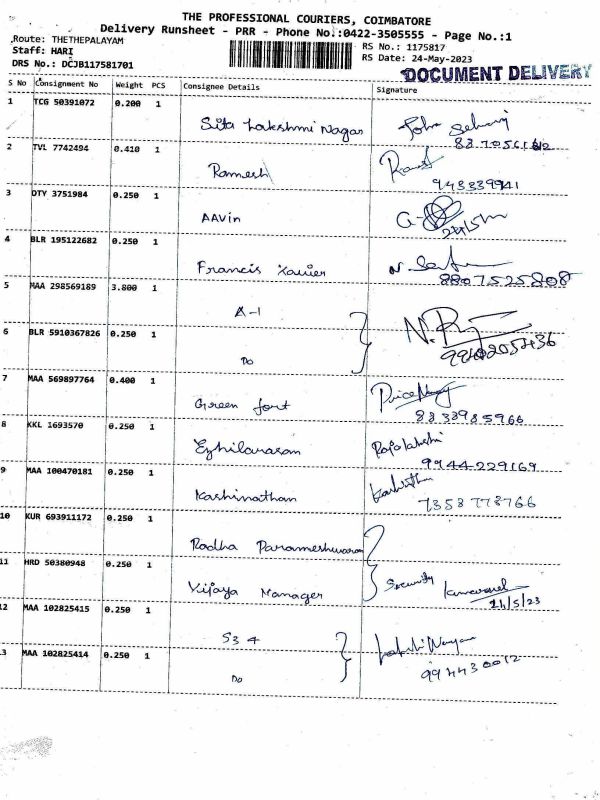 THE PROFESSIONAL COURIERS, COIMBATORE
Delivery Runsheet - PRR - Phone No.:0422-3505555 - Page No.:1
Route: THETHEPALAYAM
Staff: HARI
DRS No.: DCJB117581701
RS No.: 1175817
RS Date: 24-May-2023
DOCUMENT DELIVERY
S No Consignment No Weight PCS Consignee Details Signature
1 TCG 50391072 0.200 1
Sita Lakshmi Nagar
2 TVL 7742494 0.410 1
Ramesh
943339941
3 DTY 3751984 0.250 1
AAVin
4 BLR 195122682 0.250 1
Francis Xavier
8807525808
5 MAA 298569189 3.800 1
A-1
6 BLR 5910367826 0.250 1
Do
7 MAA 569897764 0.400 1
Green fort
8833985966
8 KKL 1693570 0.250 1
Ezhilarasan Rajalakshi
9944229169
9 MAA 100470181 0.250 1
Kashinathan
7358778766
10 KUR 693911172 0.250 1
Radha Parameshwaran
11 HRD 50380948 0.250 1
Vijaya Manager Security
12 MAA 102825415 0.250 1
S3 4
13 MAA 102825414 0.250 1
Do